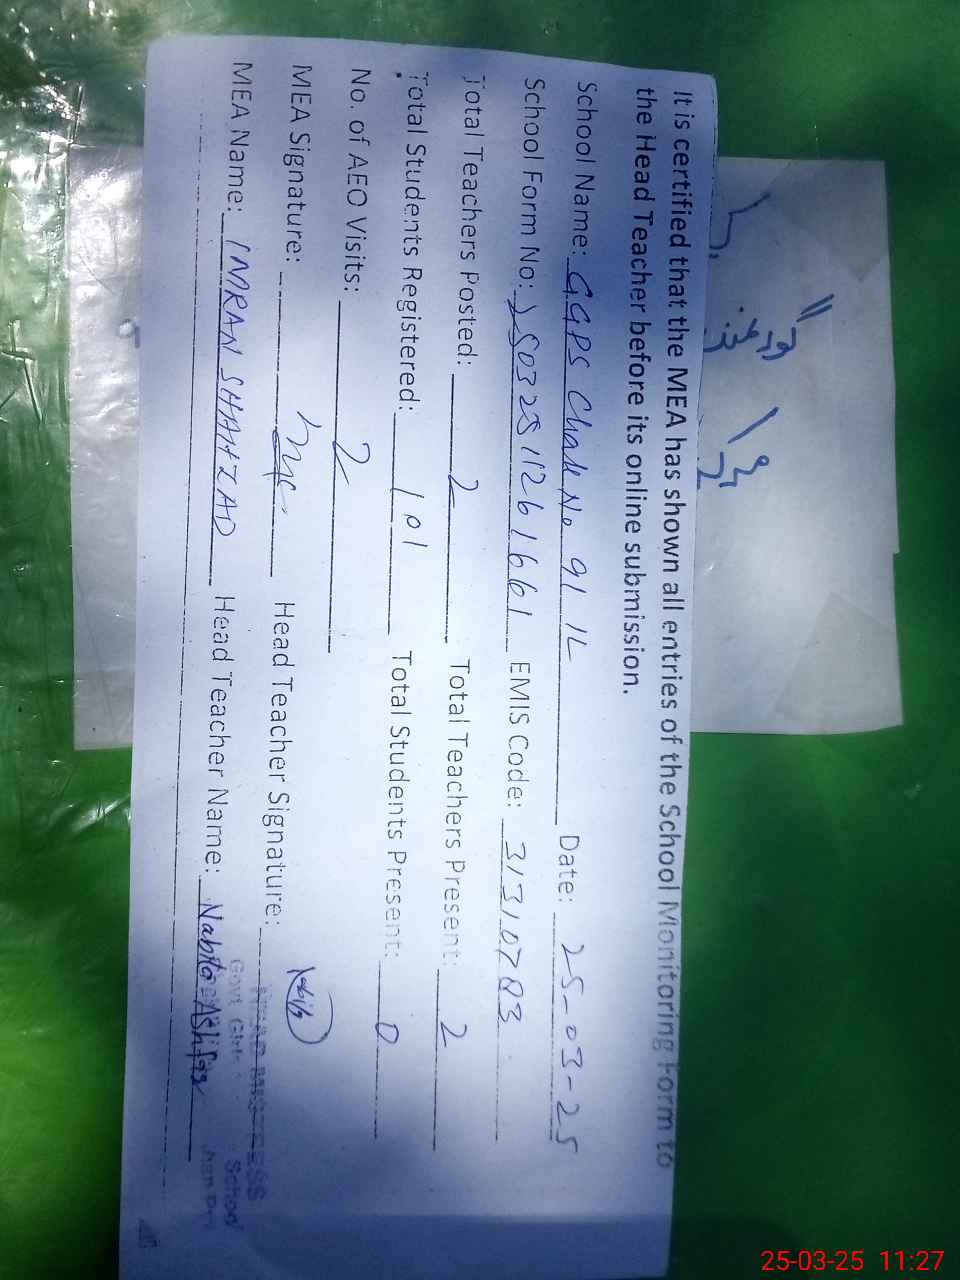 It is certified that the MEA has shown all entries of the School Monitoring Form to
the Head Teacher before its online submission.
School Name: GGPS Chak No 91 1L Date: 25-03-25
School Form No: 250325112616661 EMIS Code: 31310783
Total Teachers Posted: 2 Total Teachers Present: 2
Total Students Registered: 101 Total Students Present: 0
No. of AEO Visits: 2
MEA Signature: Head Teacher Signature:
MEA Name: IMRAN SHAHZAD Head Teacher Name: Nabila Ashfaq
HEAD MISTRESS
Govt Girls School
25-03-25 11:27